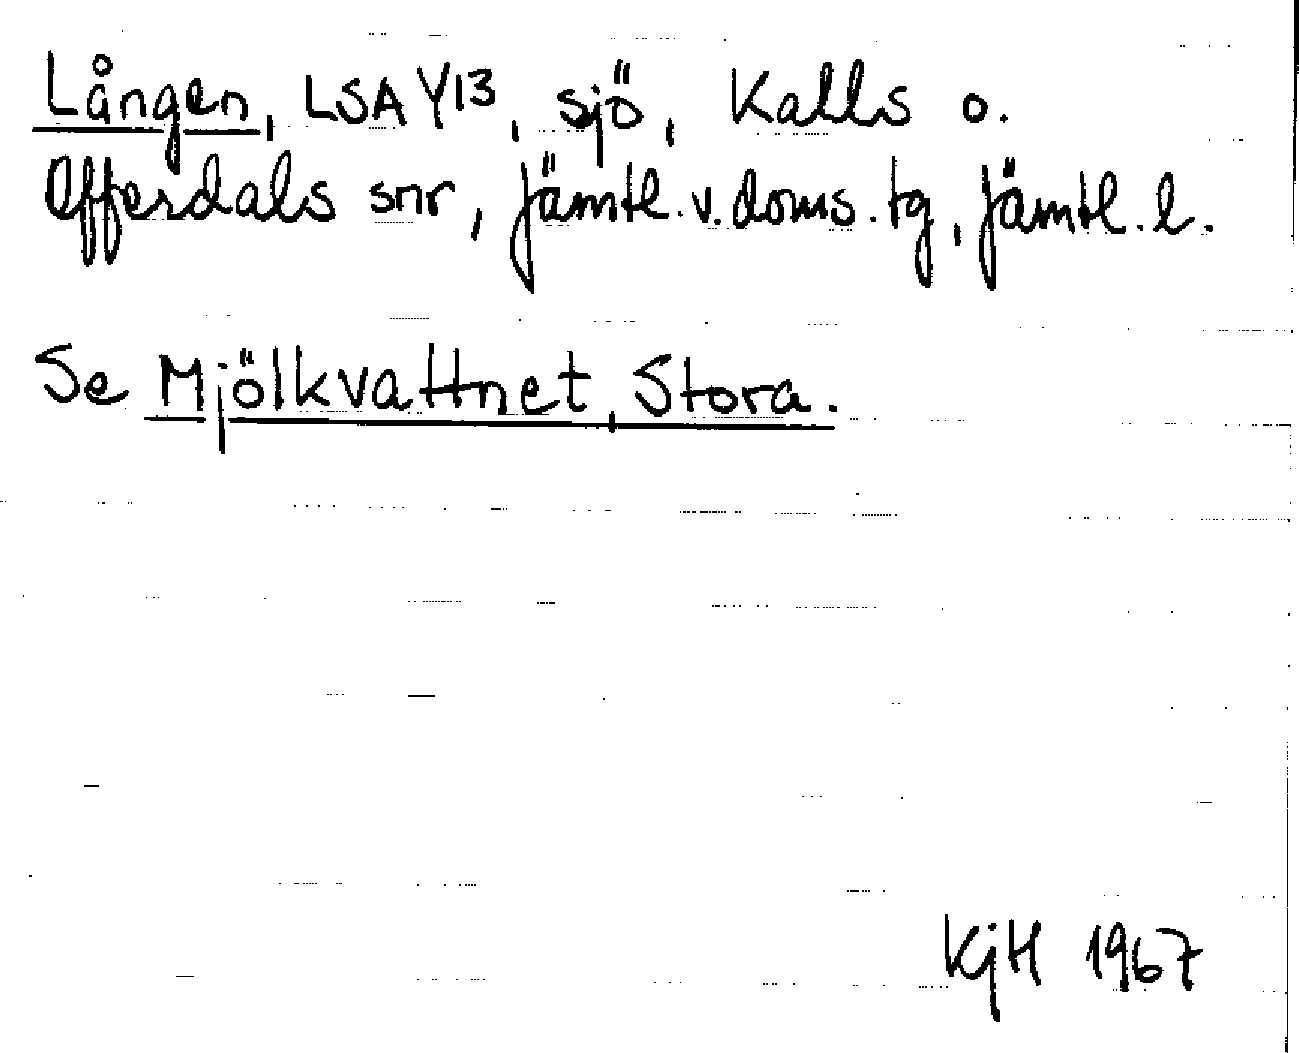 Lången, LSA Y13, sjö, Kalls o.
Offerdals snr, Jämtl. v. doms. tg, Jämtl. l.
Se Mjölkvattnet, Stora.
KjH 1967